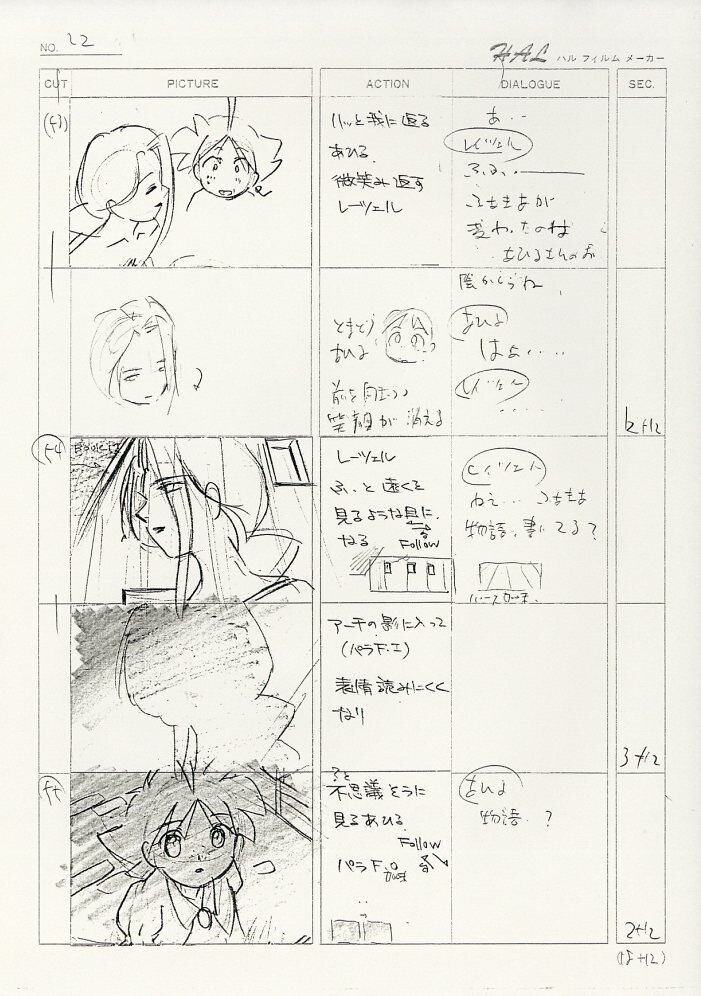 NO. 12
HAL ハル フィルム メーカー
CUT PICTURE ACTION DIALOGUE SEC.
ハッと我に返る
あひる
微笑み返す
レーツェル
あ‥
レーツェル
ふふ
変わったのは
あひるさんのお
陰かしらね
とまどう
あひる
前を向きつつ
笑顔が消える
あひる
はぁ‥‥
レーツェル
‥‥‥
2+12
54
レーツェル
ふっと遠くを
見るような目に
なる
Follow
レーツェル
ねえ…
物語、書いてる?
アーチの影に入って
(パラF・I)
表情読みにくく
なり
3+12
55
不思議そうに
見るあひる
Follow
パラF・O
あひる
物語・?
2+12